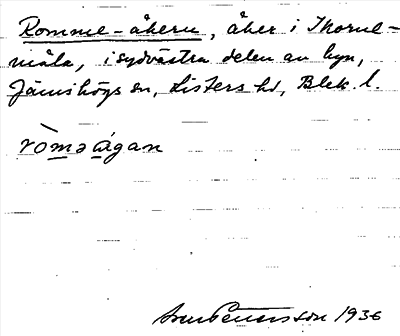 Romme-åkern, åker i Thorne-
måla, i sydvästra delen av byn,
Jämshögs sn, Listers hd, Blek. l.
ròmə ágan
Pettersson 1936